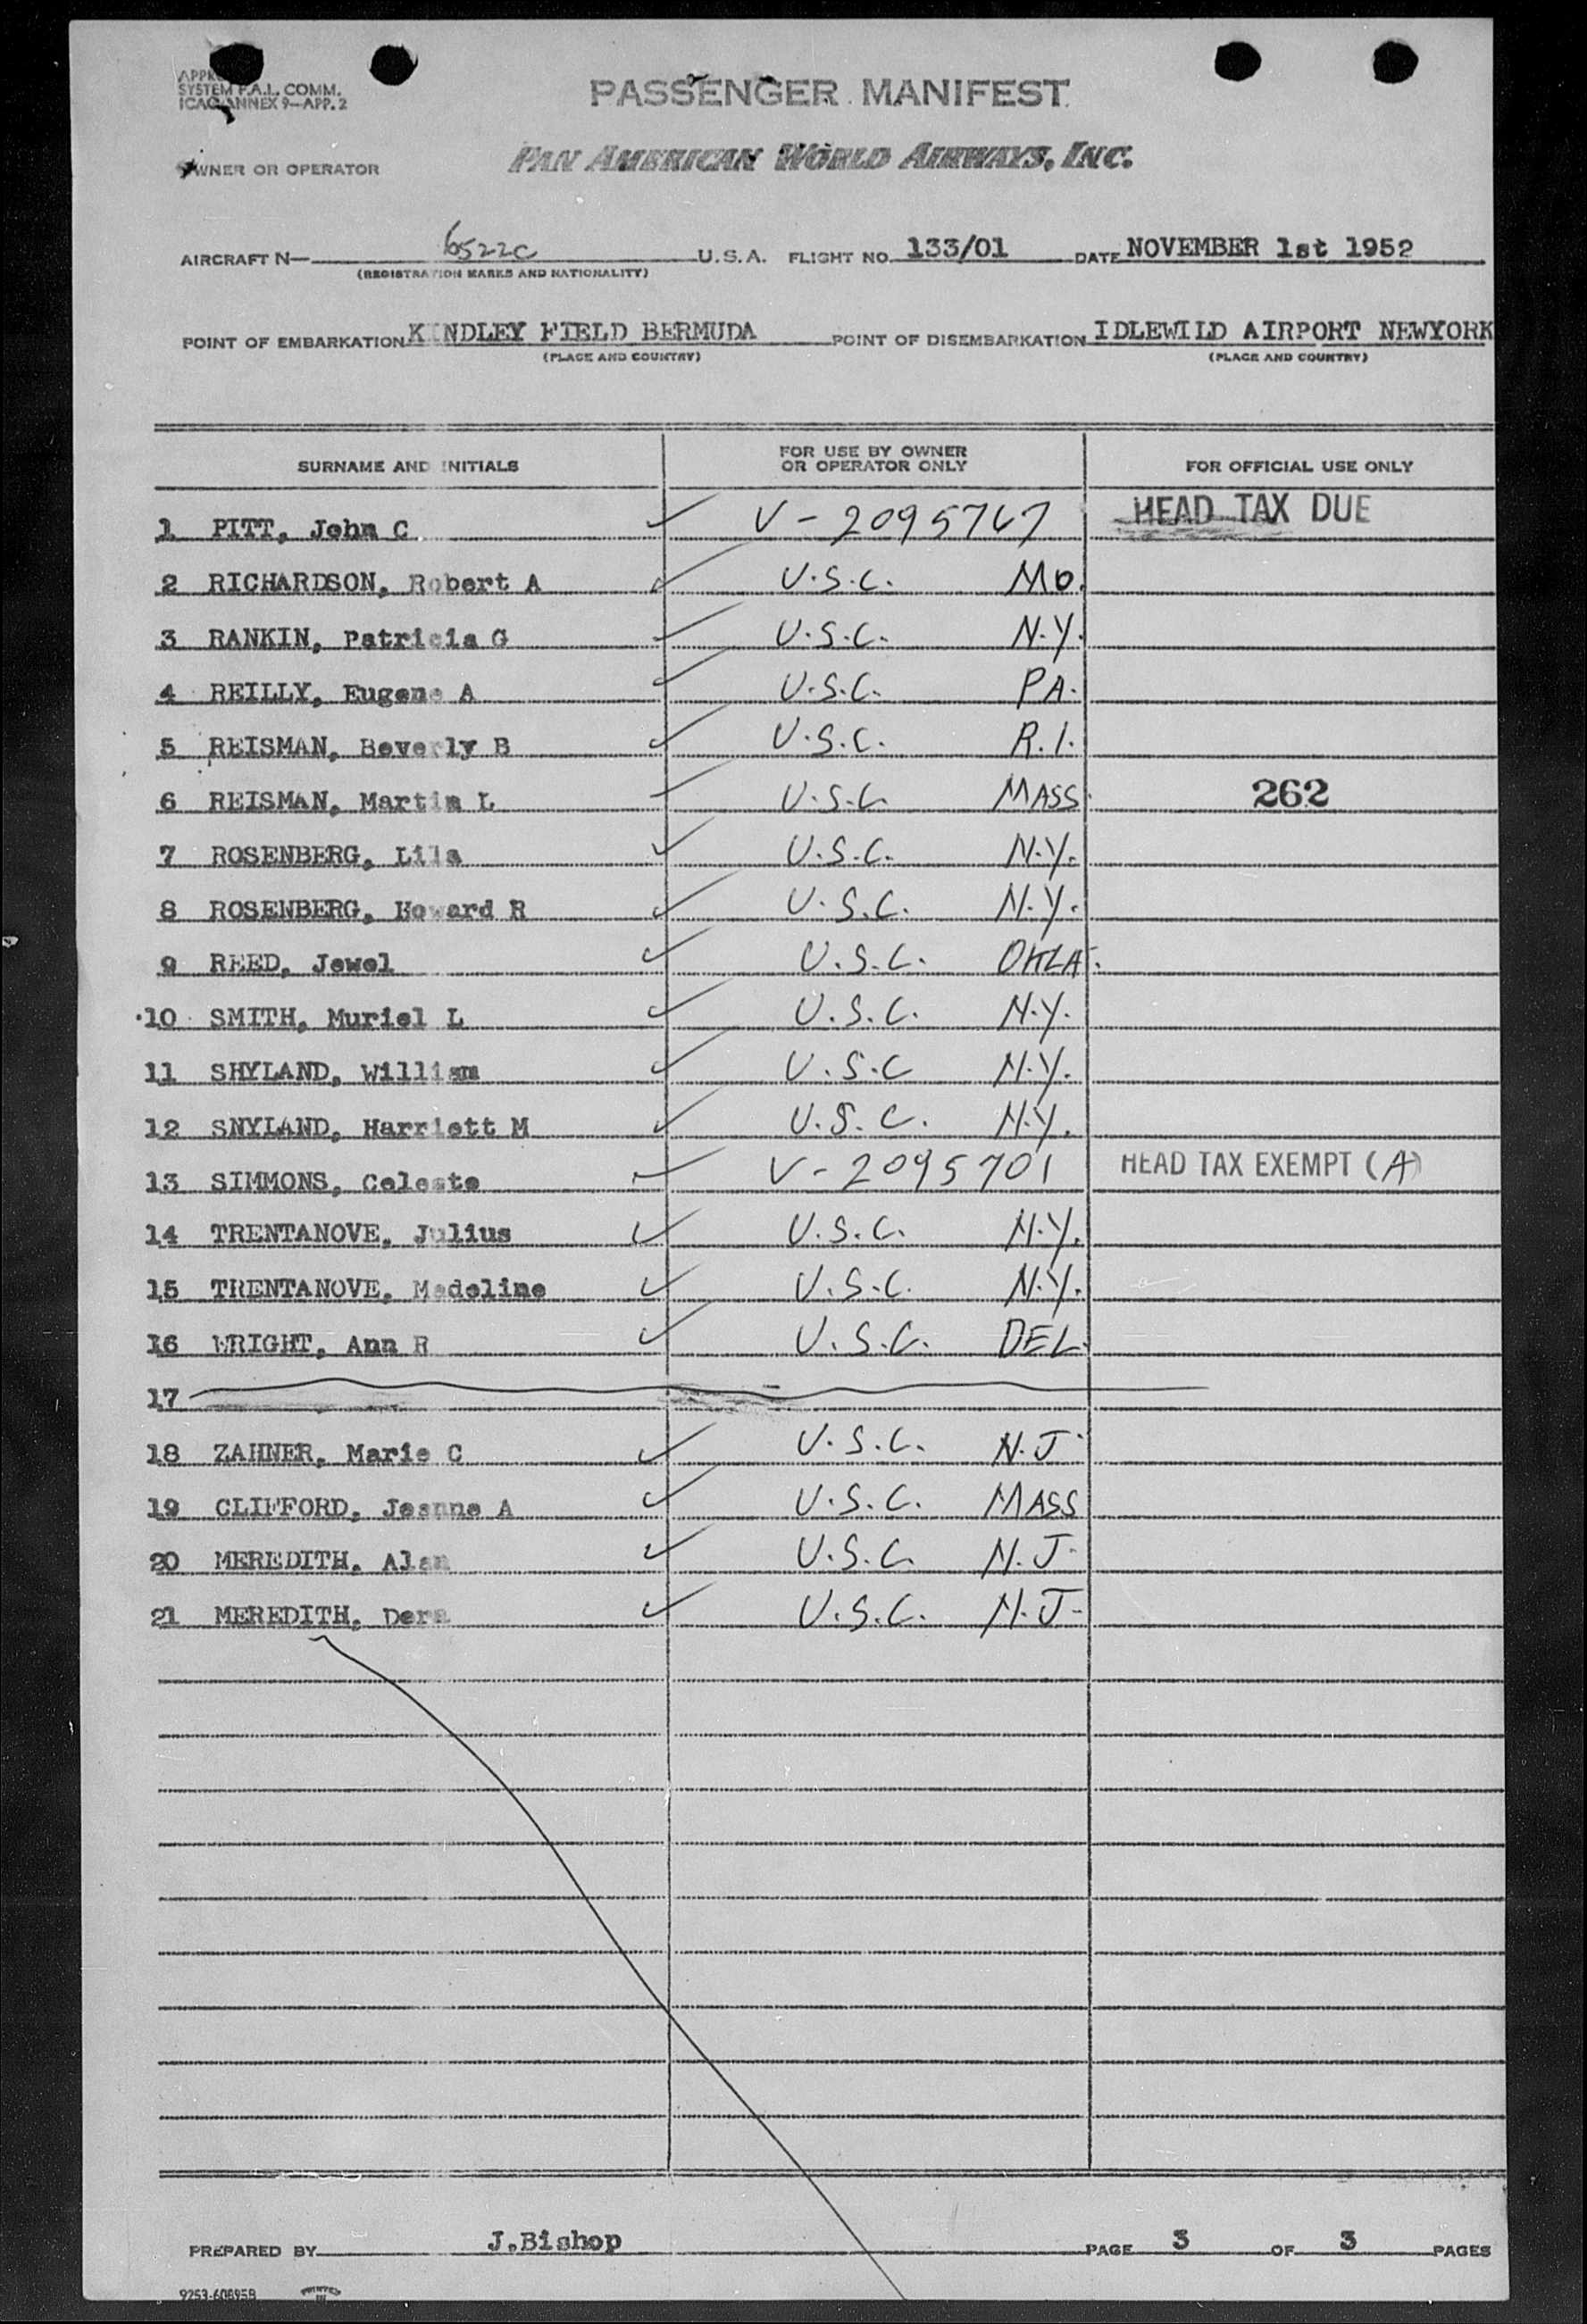 SYSTEM F.A.L. COMM.
ICAO ANNEX 9—APP. 2
PASSENGER MANIFEST
OWNER OR OPERATOR PAN AMERICAN WORLD AIRWAYS, INC.
AIRCRAFT N— 6522C U.S.A. FLIGHT NO. 133/01 DATE NOVEMBER 1st 1952
(REGISTRATION MARKS AND NATIONALITY)
POINT OF EMBARKATION KINDLEY FIELD BERMUDA POINT OF DISEMBARKATION IDLEWILD AIRPORT NEWYORK
(PLACE AND COUNTRY) (PLACE AND COUNTRY)
SURNAME AND INITIALS FOR USE BY OWNER OR OPERATOR ONLY FOR OFFICIAL USE ONLY
1 PITT, John C ✓ V-2095767 HEAD TAX DUE
2 RICHARDSON, Robert A ✓ U.S.C. Mo.
3 RANKIN, Patricia G ✓ U.S.C. N.Y.
4 REILLY, Eugene A ✓ U.S.C. PA.
5 REISMAN, Beverly B ✓ U.S.C. R.I.
6 REISMAN, Martin L ✓ U.S.C. MASS. 262
7 ROSENBERG, Lila ✓ U.S.C. N.Y.
8 ROSENBERG, Howard R ✓ U.S.C. N.Y.
9 REED, Jewel ✓ U.S.C. OKLA.
10 SMITH, Muriel L ✓ U.S.C. N.Y.
11 SHYLAND, William ✓ U.S.C N.Y.
12 SNYLAND, Harriett M ✓ U.S.C. N.Y.
13 SIMMONS, Celeste ✓ V-2095701 HEAD TAX EXEMPT (A)
14 TRENTANOVE, Julius ✓ U.S.C. N.Y.
15 TRENTANOVE, Madeline ✓ U.S.C. N.Y.
16 WRIGHT, Ann R ✓ U.S.C. DEL.
17
18 ZAHNER, Marie C ✓ U.S.C. N.J.
19 CLIFFORD, Jeanne A ✓ U.S.C. MASS
20 MEREDITH, Alan ✓ U.S.C. N.J.
21 MEREDITH, Dera ✓ U.S.C. N.J.
PREPARED BY J.Bishop PAGE 3 OF 3 PAGES
9253-60895B